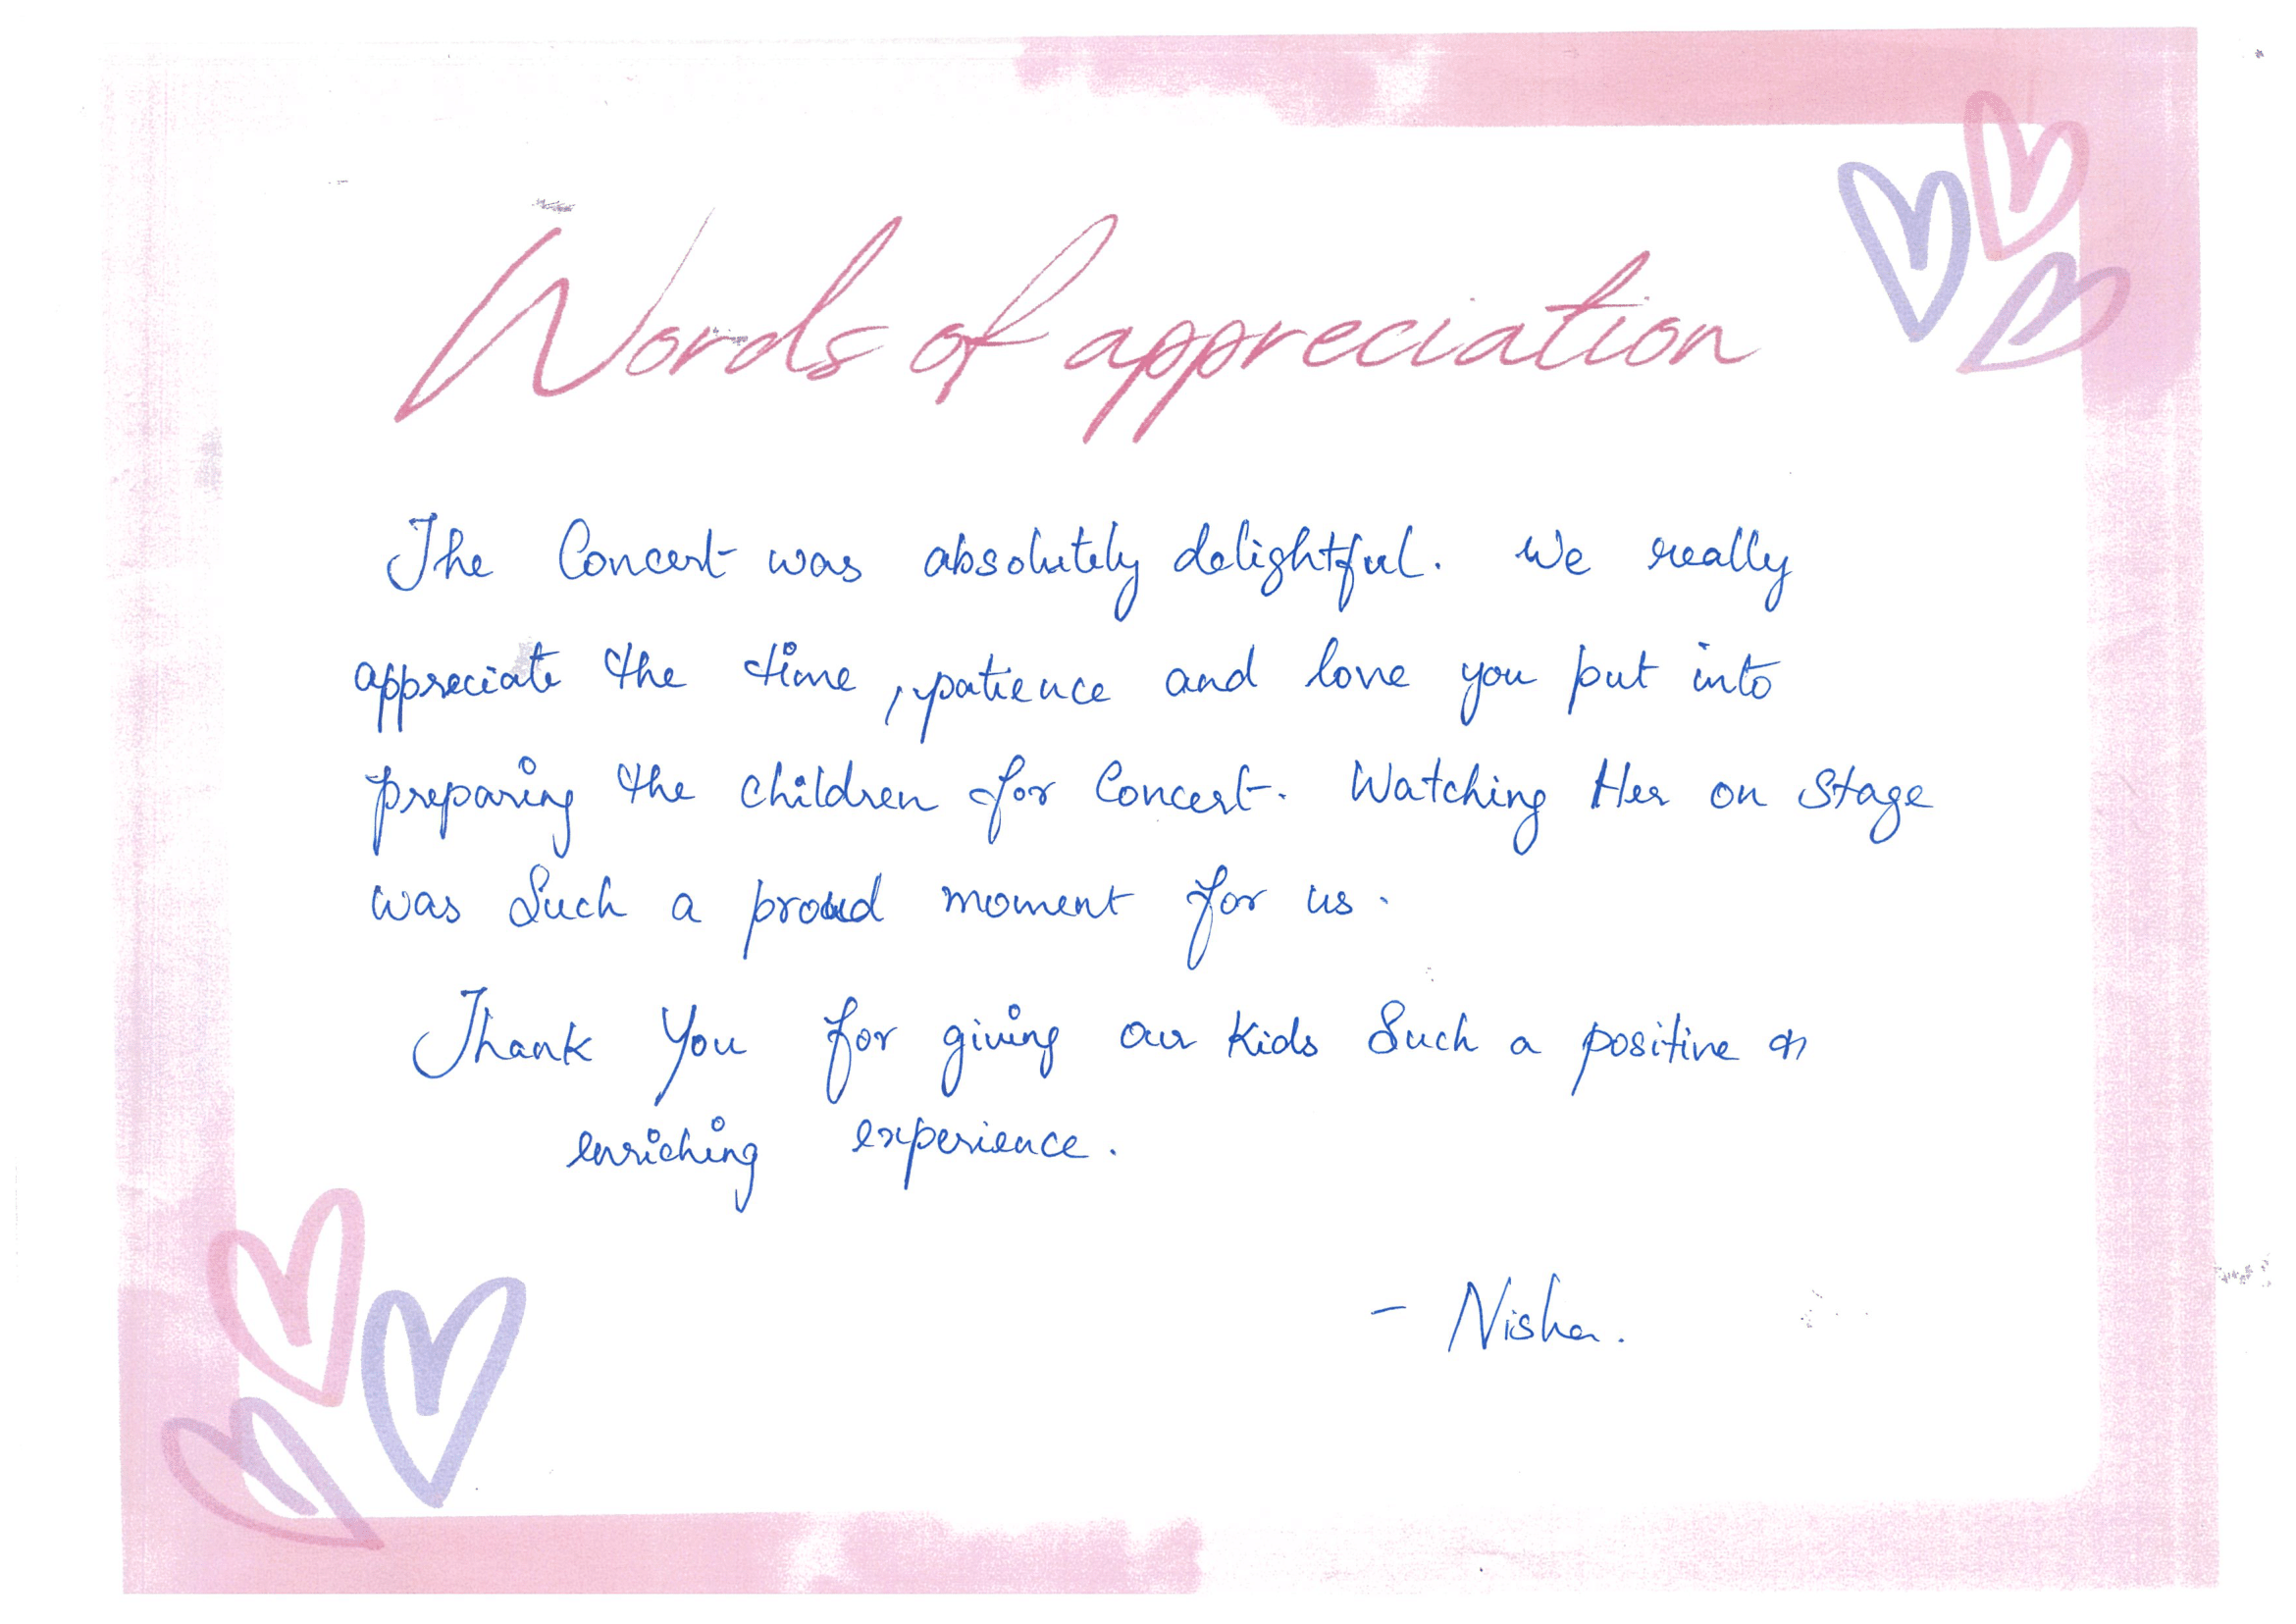 Words of appreciation
The Concert was absolutely delightful. We really
appreciate the time, patience and love you put into
preparing the children for Concert. Watching Her on Stage
was Such a proud moment for us.
Thank You for giving our Kids Such a positive &
enriching experience.
- Nisha.